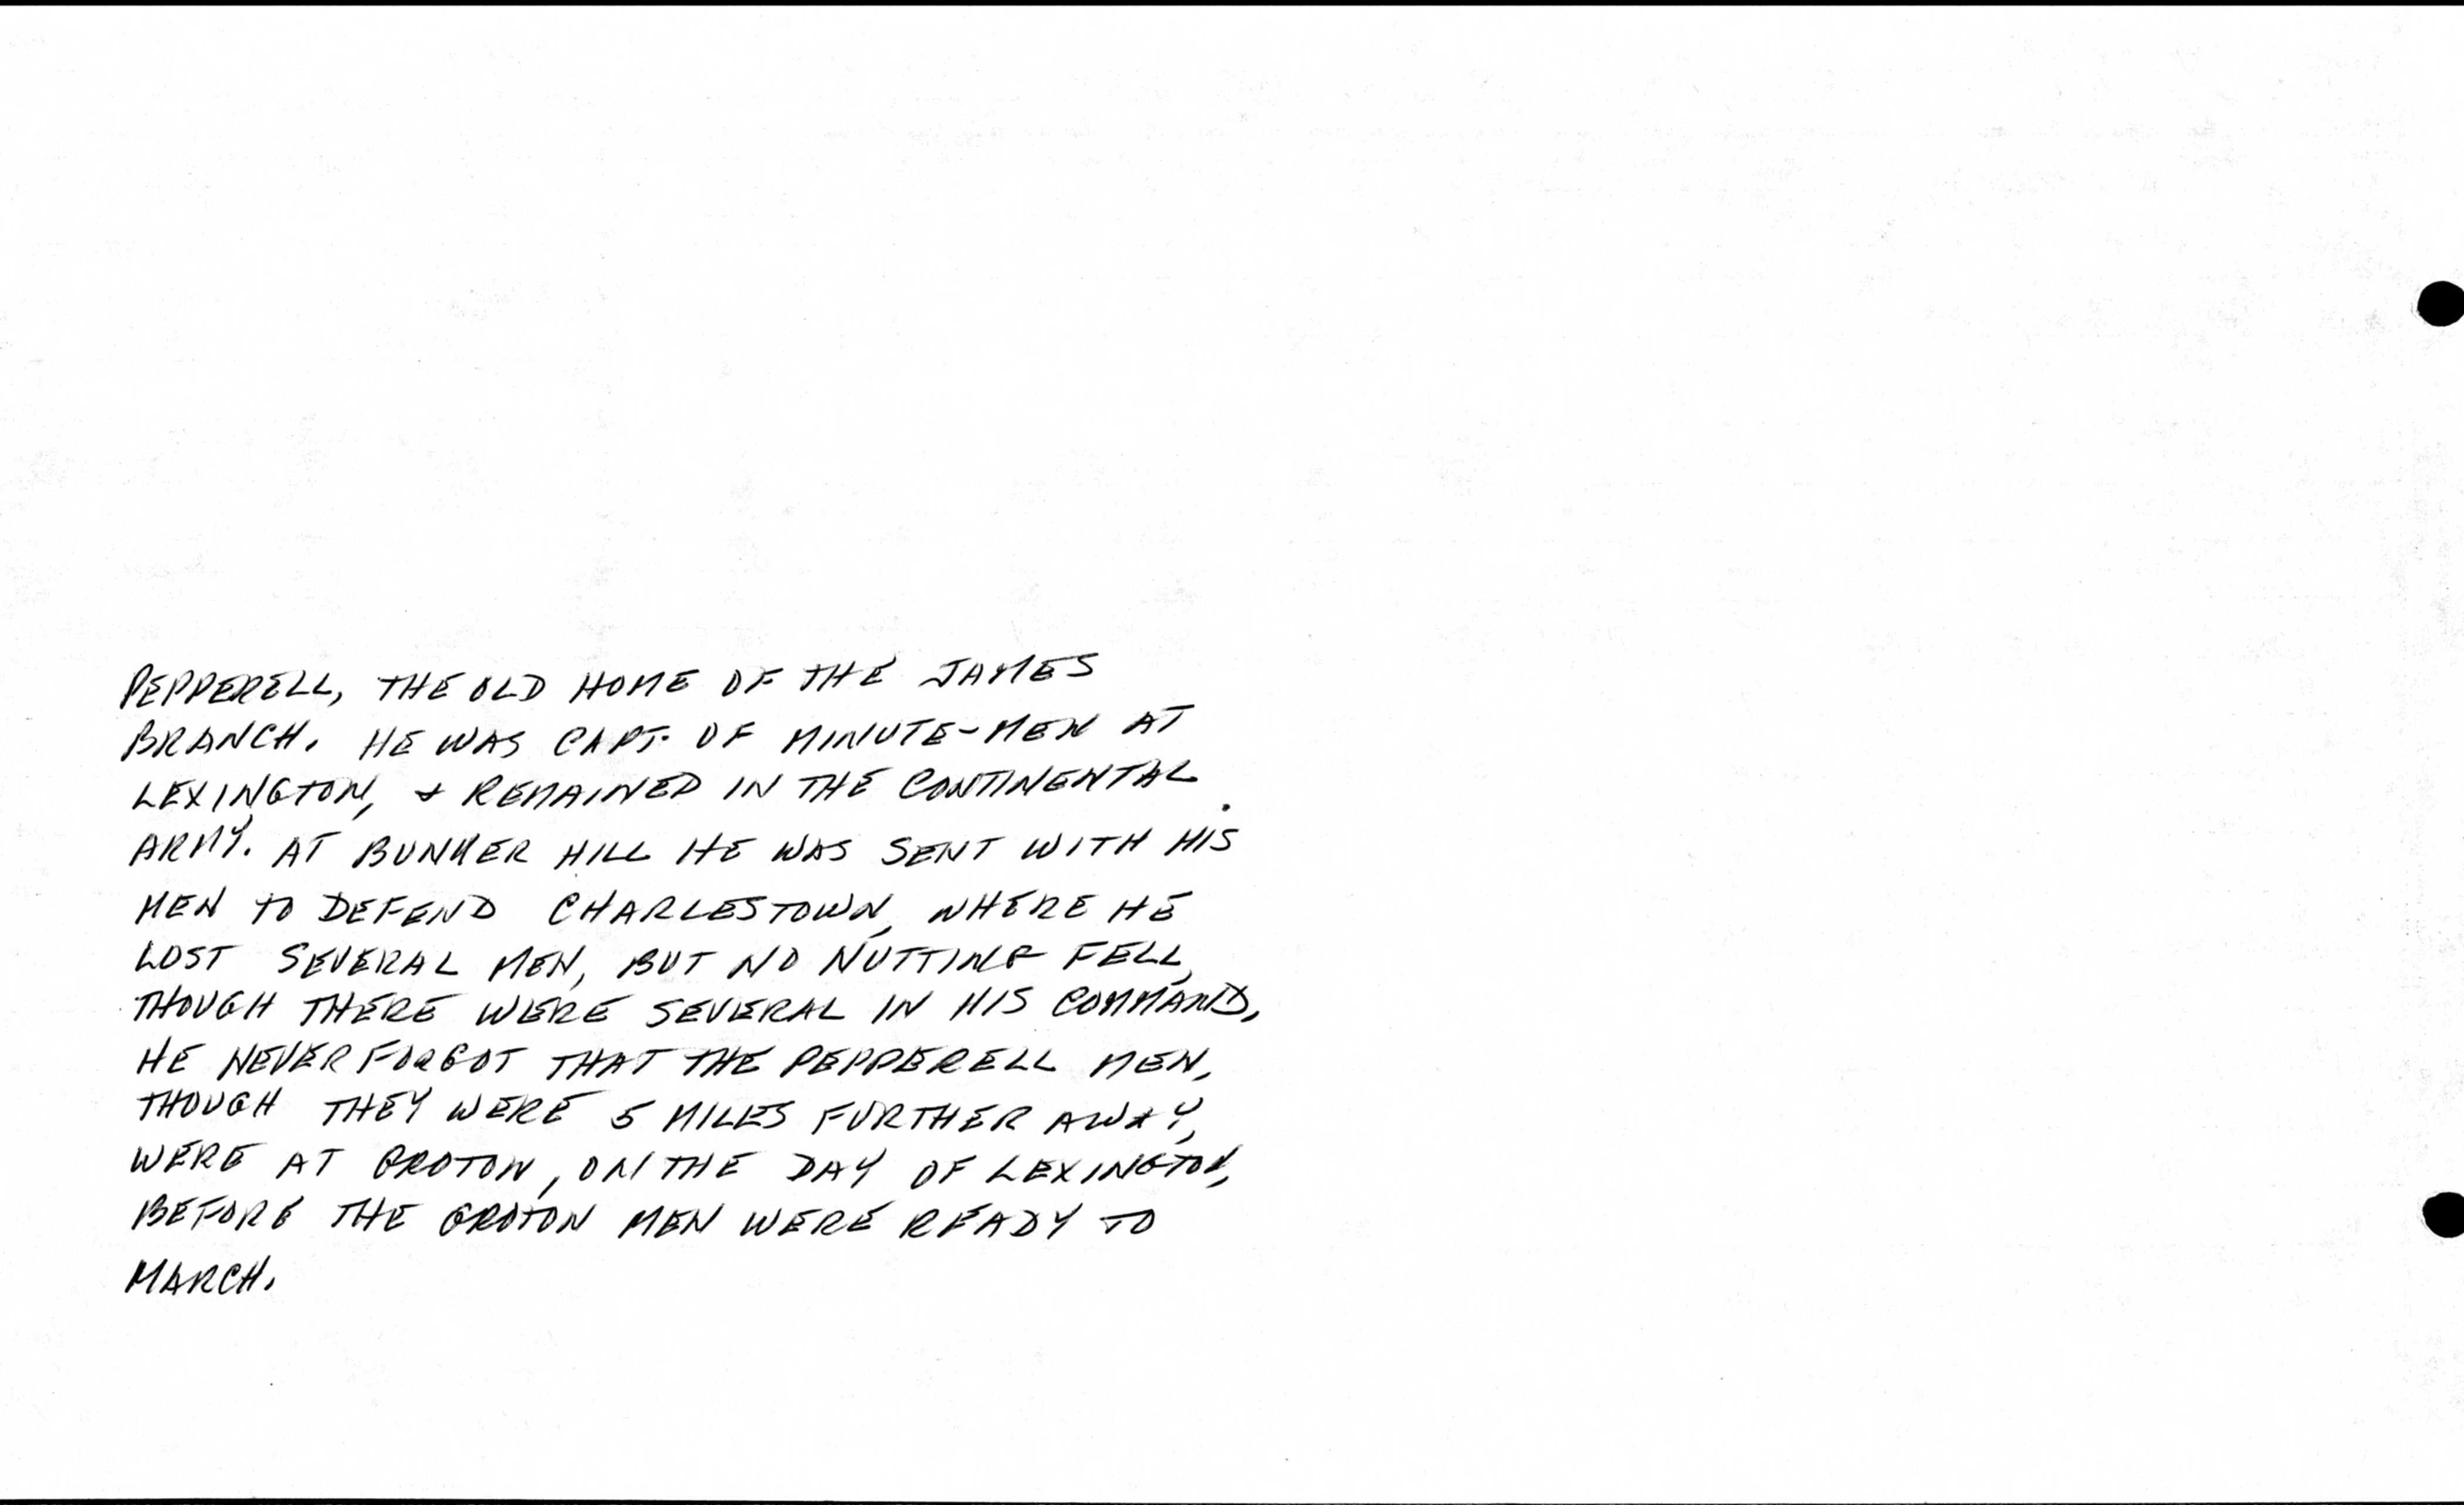 PEPPERELL, THE OLD HOME OF THE JAMES
BRANCH. HE WAS CAPT. OF MINUTE-MEN AT
LEXINGTON, & REMAINED IN THE CONTINENTAL
ARMY. AT BUNKER HILL HE WAS SENT WITH HIS
MEN TO DEFEND CHARLESTOWN, WHERE HE
LOST SEVERAL MEN, BUT NO NUTTING FELL,
THOUGH THERE WERE SEVERAL IN HIS COMMAND,
HE NEVER FORGOT THAT THE PEPPERELL MEN,
THOUGH THEY WERE 5 MILES FURTHER AWAY,
WERE AT GROTON, ON THE DAY OF LEXINGTON,
BEFORE THE GROTON MEN WERE READY TO
MARCH.